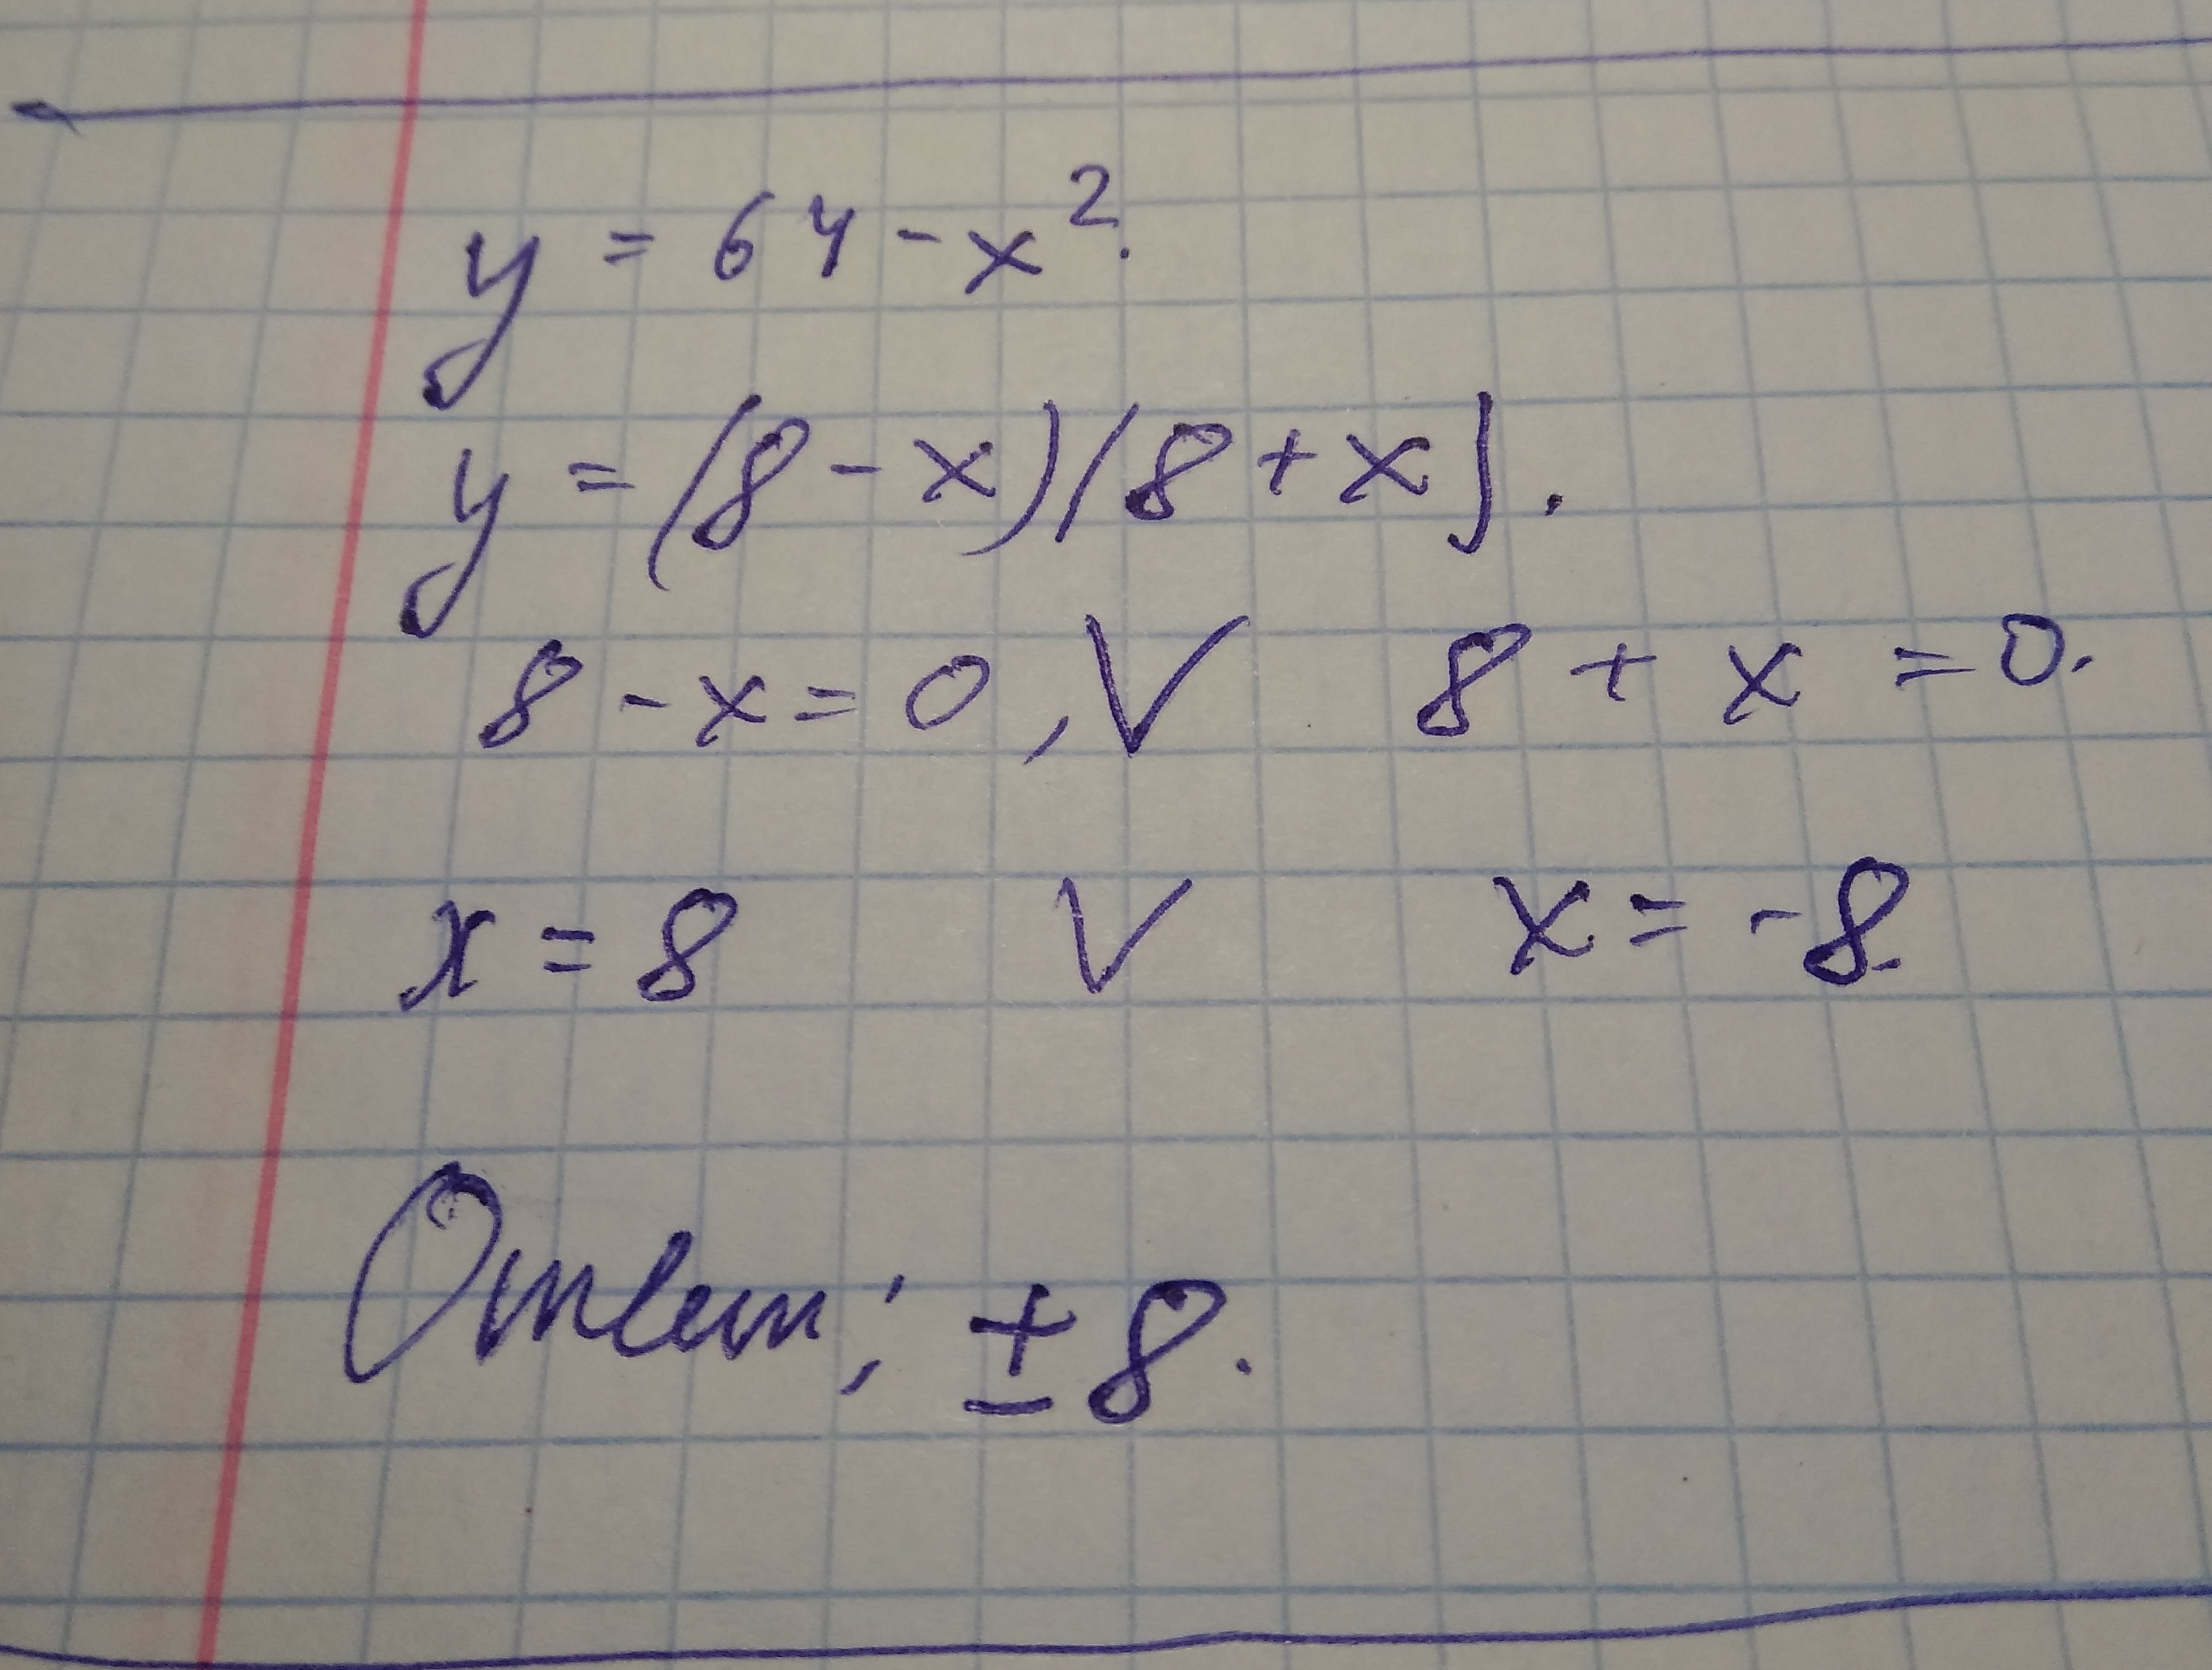 y = 64 - x².
y = (8 - x)(8 + x).
8 - x = 0, V 8 + x = 0.
x = 8 V x = -8.
Ответ: ± 8.